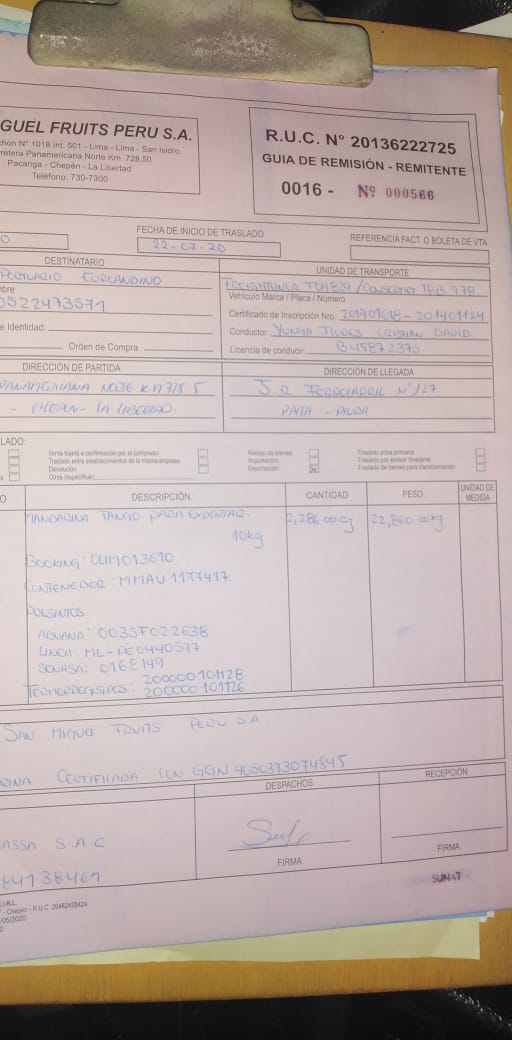 GUEL FRUITS PERU S.A.
chon N° 1018 Int. 501 - Lima - Lima - San Isidro
retera Panamericana Norte Km. 728.50
Pacanga - Chepén - La Libertad
Teléfono: 730-7300
R.U.C. N° 20136222725
GUIA DE REMISIÓN - REMITENTE
0016 - Nº 000566
FECHA DE INICIO DE TRASLADO
22-07-20
REFERENCIA FACT. O BOLETA DE VTA
DESTINATARIO
PORTUARIO EUROANDINO
bre
0522473571
e Identidad:
Orden de Compra
UNIDAD DE TRANSPORTE
Vehículo Marca / Placa / Número
Certificado de Inscripción Nro.
Conductor: CRISTIAN DAVID
Licencia de conducir: B45872375
DIRECCIÓN DE PARTIDA
PANAMERICANA NORTE KM 728.5
- CHEPEN - LA LIBERTAD.
DIRECCIÓN DE LLEGADA
J.R FERROCARRIL N° 127
PAITA - PIURA
LADO:
Venta sujeta a confirmación por el comprador
Traslado entre establecimientos de la misma empresa
Devolución
Otros (especificar)
Recojo de bienes
Importación
Exportación
Traslado zona primaria
Traslado por emisor itinerante
Traslado de bienes para transformación
O
DESCRIPCIÓN
CANTIDAD
PESO
UNIDAD DE MEDIDA
MANDARINA TANGO PARA EXPORTAR. 2,286.00 CJ 22,860.00 kg
10kg
BOOKING: CUM013610
CONTENEDOR: MMAU 1177417
PRESINTOS
ADUANA: 003SF022638
LINEA: ML-PE0440577
SENASA: 0168149
TERMOREGISTROS: 20000010112B
200000101126
SAN MIGUEL FRUITS PERU S A
RINA CERTIFICADA CON GGN 4050373074845
DESPACHOS
RECEPCIÓN
ASSA S A C
FIRMA
FIRMA
SUNAT
E.I.R.L.
- Chepén - R.U.C. 20482479424
/05/2020
0